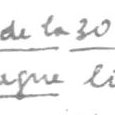 de la 30
egne li